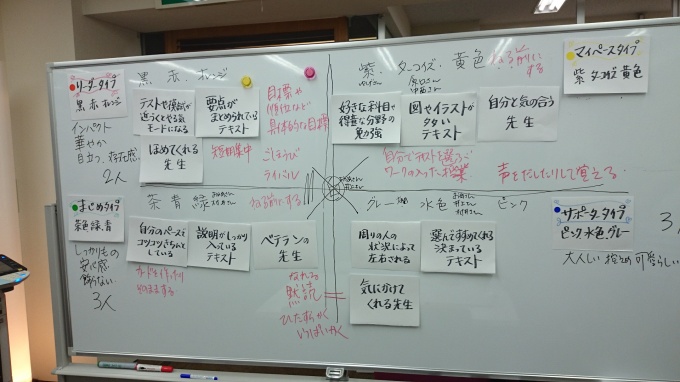 リーダータイプ
黒 赤 オレンジ
インパクト
華やか
目立つ、存在感
2人
黒・赤・オレンジ
テストや模試が
近づくとやる気
モードになる
要点が
まとめられている
テキスト
ほめてくれる
先生
目標や
順位など
具体的な目標
短期集中
ごほうび
ライバル
紫・ターコイズ・黄色
マイペースタイプ
紫 ターコイズ 黄色
好きな科目や
得意な分野の
勉強
図やイラストが
多い
テキスト
自分と気の合う
先生
自分でテキストを選ぶ
ワークの入った授業
声をだしたりして覚える
まじめタイプ
茶色 緑 青
しっかりもの
安心感
飾らない
3人
茶 青 緑
ねる前にする
自分のペースで
コツコツきちんと
している
説明がしっかり
入っている
テキスト
ベテランの
先生
黙読
ひたすらかく
いっぱいかく
グレー
水色
ピンク
サポータータイプ
ピンク 水色 グレー
3
大人しい 控え目 可愛らしい
周りの人の
状況によって
左右される
選んですすめてくれる
決まっている
テキスト
気にかけて
くれる先生